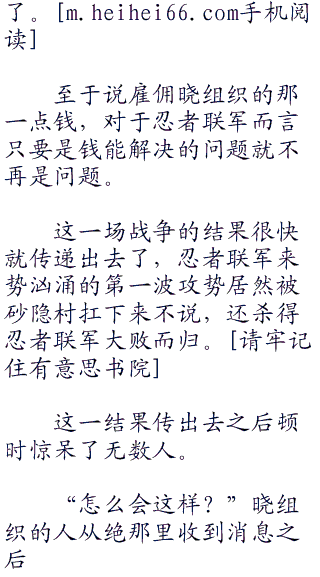 了。[m.heihei66.com手机阅
读]
至于说雇佣晓组织的那
一点钱，对于忍者联军而言
只要是钱能解决的问题就不
再是问题。
这一场战争的结果很快
就传递出去了，忍者联军来
势汹涌的第一波攻势居然被
砂隐村扛下来不说，还杀得
忍者联军大败而归。[请牢记
住有意思书院]
这一结果传出去之后顿
时惊呆了无数人。
“怎么会这样？”晓组
织的人从绝那里收到消息之
后